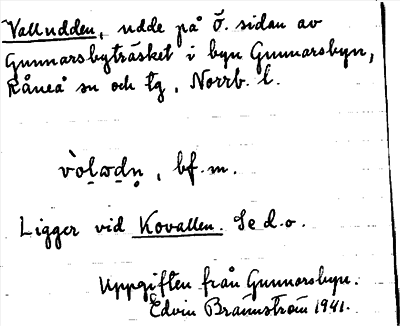 Valludden, udde på ö. sidan av
Gunnarsbyträsket i byn Gunnarsbyn,
Råneå sn och tg, Norrb. l.
vò̀lωdn̥, bf. m.
Ligger vid Kovallen. Se d. o.
Uppgiften från Gunnarsbyn.
Edvin Brännström 1941.